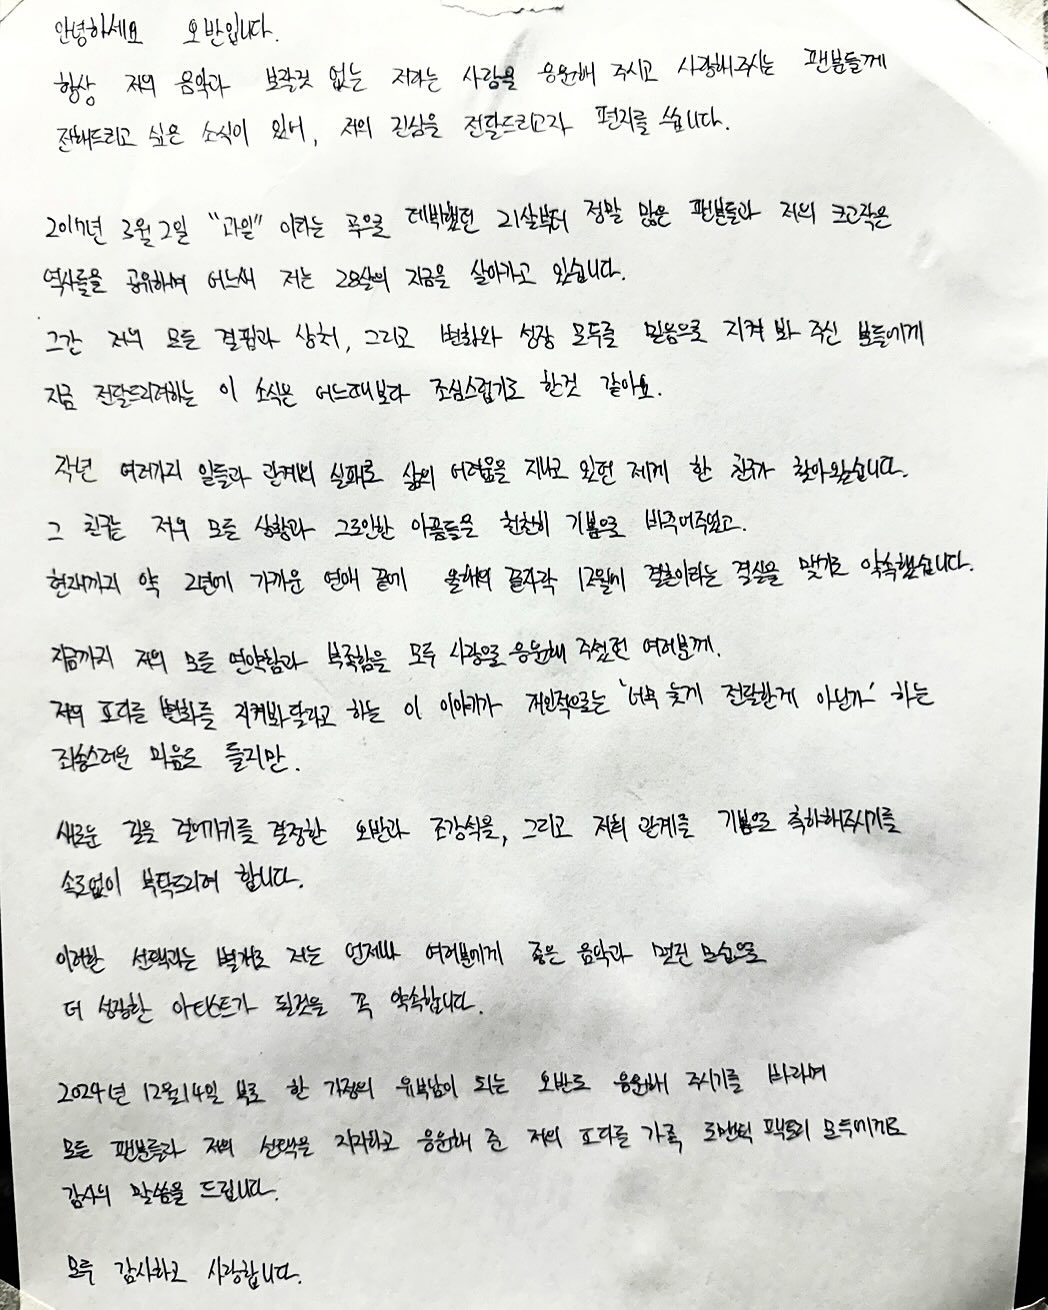 안녕하세요 오반입니다.
항상 저의 음악과 보잘것 없는 저라는 사람을 응원해 주시고 사랑해주시는 팬분들께
전해드리고 싶은 소식이 있어, 저의 진심을 전달드리고자 편지를 씁니다.
2017년 3월 2일 "과일" 이라는 곡으로 데뷔했던 21살부터 정말 많은 팬분들과 저의 크고작은
역사들을 공유하며 어느새 저는 28살의 지금을 살아가고 있습니다.
그간 저의 모든 결핍과 상처, 그리고 변화와 성장 모두를 믿음으로 지켜 봐 주신 분들에게
지금 전달드리려하는 이 소식은 어느때보다 조심스럽기도 한것 같아요.
작년 여러가지 일들과 관계의 실패로 삶의 어려움을 지나고 있던 제게 한 친구가 찾아왔습니다.
그 친구는 저의 모든 상황과 그로인한 아픔들을 천천히 기쁨으로 바꾸어주었고.
현재까지 약 2년에 가까운 연애 끝에 올해의 끝자락 12월에 결혼이라는 결실을 맺기로 약속했습니다.
지금까지 저의 모든 연약함과 부족함을 모두 사랑으로 응원해 주셨던 여러분께.
저의 또다른 변화를 지켜봐달라고 하는 이 이야기가 개인적으로는 '너무 늦게 전달한게 아닌가' 하는
죄송스러운 마음도 들지만.
새로운 길을 걸어가기를 결정한 오반과 조강석을, 그리고 저희 관계를 기쁨으로 축하해주시기를
속도없이 부탁드리려 합니다.
이러한 선택과는 별개로 저는 언제나 여러분에게 좋은 음악과 멋진 모습으로
더 성장한 아티스트가 될것을 꼭 약속합니다.
2024년 12월 14일 부로 한 가정의 유부남이 되는 오반도 응원해 주시기를 바라며
모든 팬분들과 저의 선택을 지지하고 응원해 준 저의 또다른 가족 로맨틱 팩토리 모두에게도
감사의 말씀을 드립니다.
모두 감사하고 사랑합니다.